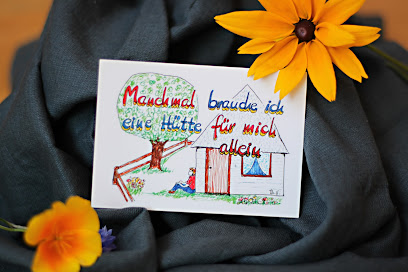 Manchmal brauche ich
eine Hütte für mich
allein